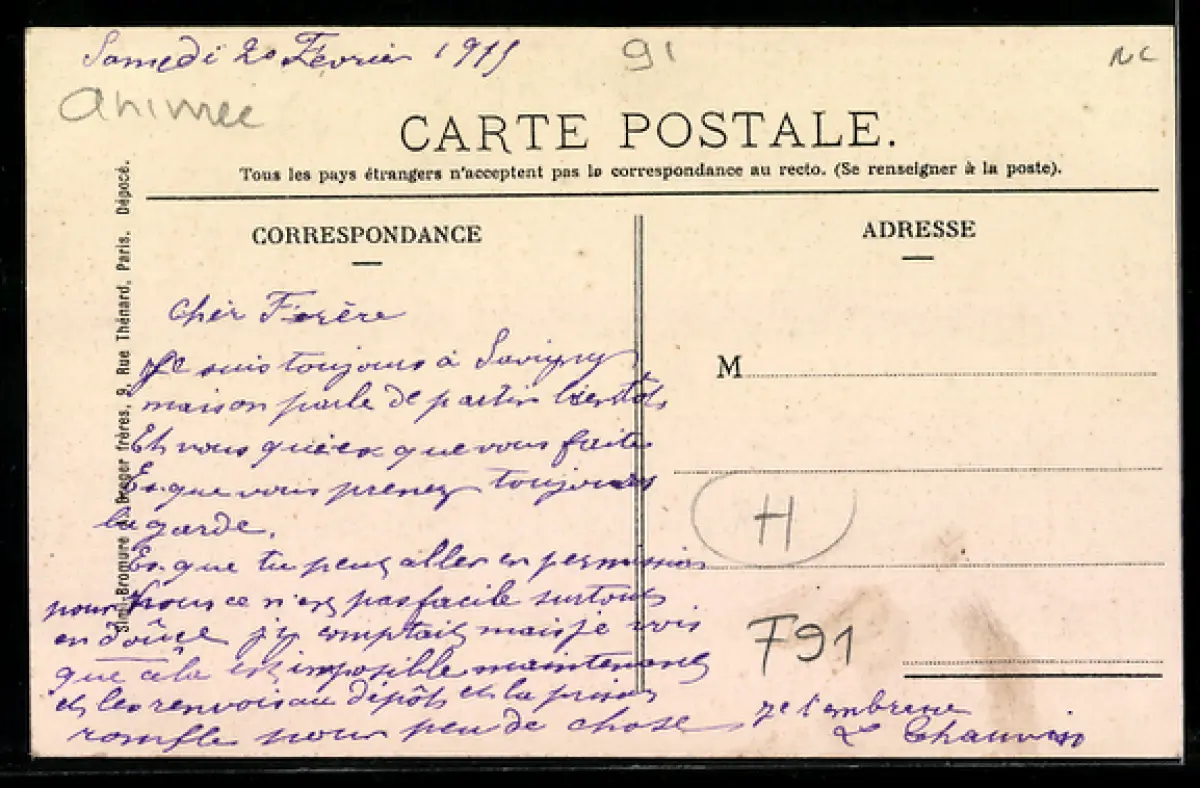 Samedi 20 Février 1915
91
NC
animee
CARTE POSTALE.
Tous les pays étrangers n'acceptent pas la correspondance au recto. (Se renseigner à la poste).
CORRESPONDANCE
ADRESSE
Simi-Bromure A. Breger frères, 9, Rue Thénard, Paris. Déposé.
Cher Frère
Je suis toujours à Savigny
maison parle de partir bientôt
Et vous qu'ex que vous faite
Es que vous prenez toujours
la garde.
Es que tu peux aller en permission
pour nous ce n'es pas facile surtout
en douce j'y comptait mais je vois
que cela est imposible maintenant
et les renvois au dépôt et la prison
ronfle pour peu de chose
M
H
F91
Je t'embrasse
Chauvin